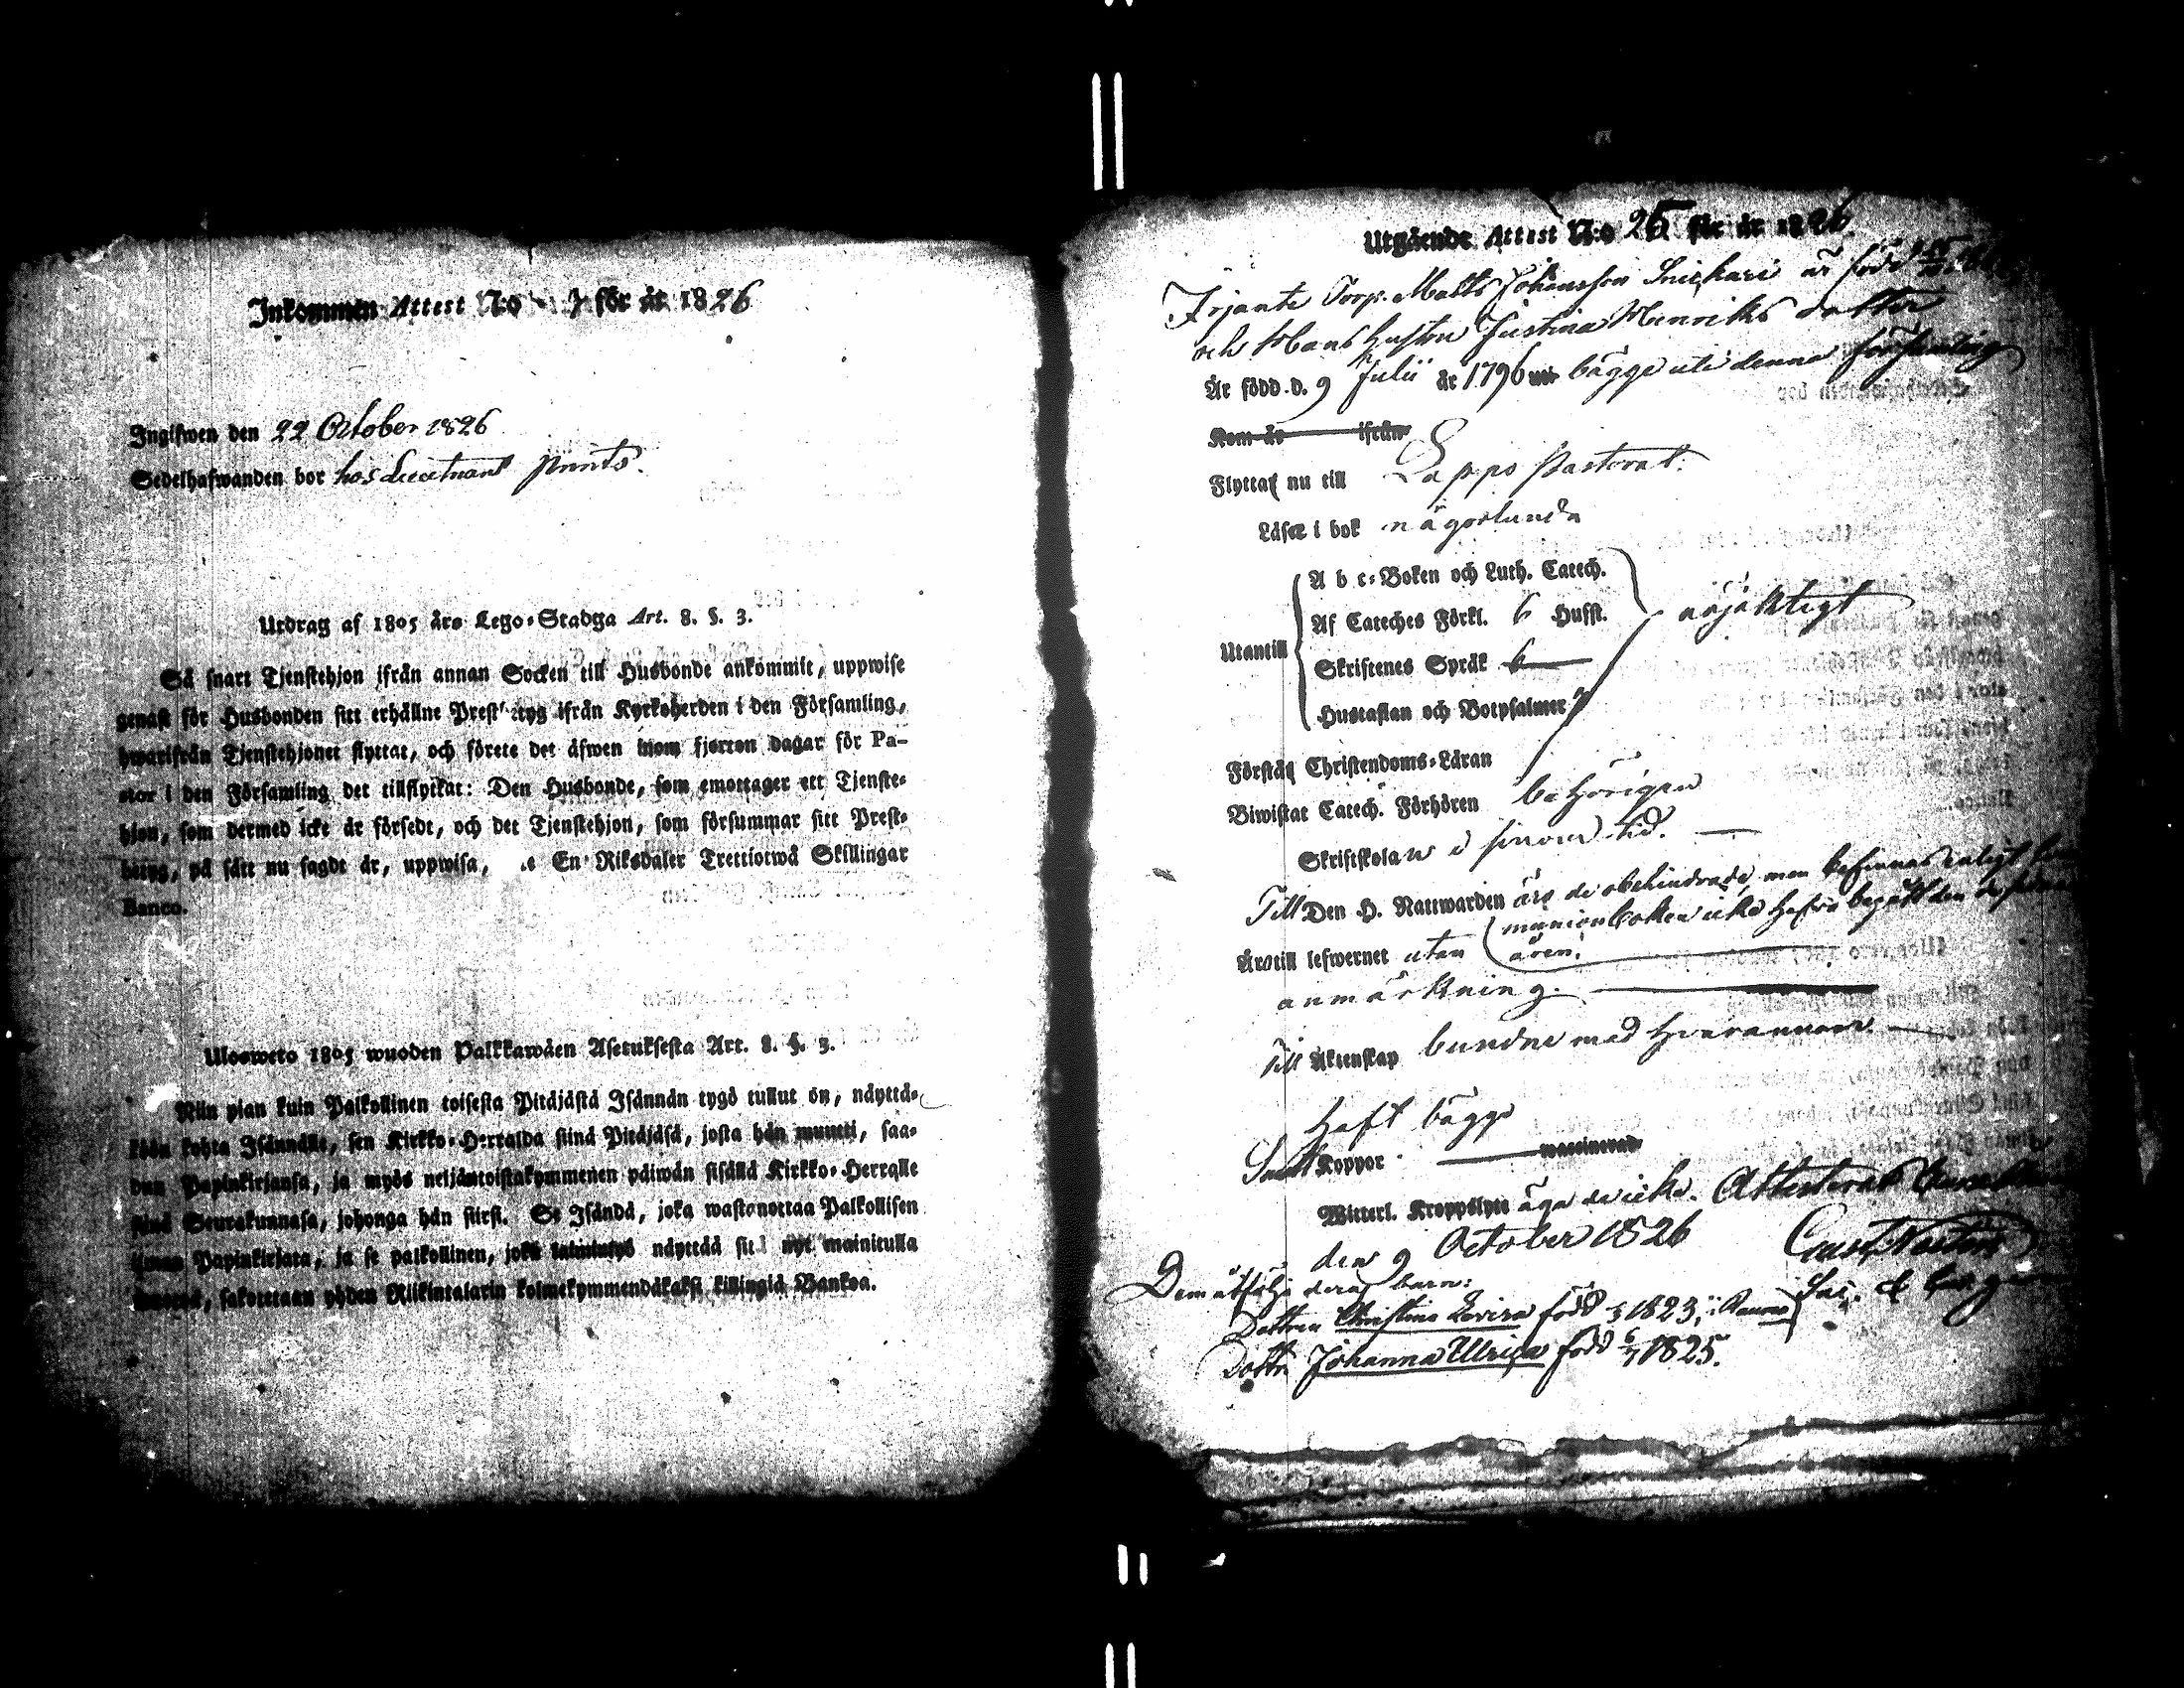 Inkommen Attest N:o för år 1826
Ingifwen den 22 October 1826
Sedelhafwanden bor hos Lieutnant
Utdrag af 1805 års Lego-Stadga Art. 8. §. 3.
Så snart Tjenstehjon ifrån annan Socken till Husbonde ankommit, uppwise
genast för Husbonden sitt erhållne Prestbetyg ifrån Kyrkoherden i den Församling,
hwarifrån Tjenstehjonet flyttat, och förete det äfwen inom fjorton dagar för Pa-
stor i den Församling det tillflyttat: Den Husbonde, som emottager ett Tjenste-
hjon, som dermed icke är försedt, och det Tjenstehjon, som försummar sitt Prest-
betyg, på sätt nu sagdt är, uppwisa, En Riksdaler Trettiotwå Skillingar
Banco.
Ulosweto 1805 wuoden Palkkawäen Asetuksesta Art. 8. §. 3.
Niin pian kuin Palkollinen toisesta Pitäjästä Isännän tygö tullut on, näyttä-
kään kohta Isännälle, sen Kirkko-Herralda siinä Pitäjäsä, josta hän muutti, saa-
dun Papinkirjansa, ja myös neljäntoistakymmenen päiwän sisällä Kirkko-Herralle
siinä Seurakunnasa, johonga hän siirsi. Se Isändä, joka wastanottaa Palkollisen
ilman Papinkirjata, ja se palkollinen, joka näyttää nyt mainitulla
, sakotetaan yhden Riikintalarin kolmekymmendäkaksi killingiä Bankoa.
Utgående Attest N:o 25 för år 1826.
Torp. Matts Johansson Snickari är född
och Hans Hustru Justina Henriks dotter
Är född d. 9 Julii år 1796 bägge uti denna församling
Kom år ifrån
Flyttat nu till Lappo Pastorat.
Läser i bok någorlunda
Utantill
A b c-Boken och Luth. Catech.
Af Cateches Förkl. 6 Husst.
Skriftenes Språk 6
Hustaflan och Botpsalmer
nöjaktigt
Förstå Christendoms-Läran
Biwistat Catech. Förhören behörigen
Skriftskolan i sinom tid.
Till Den H. Nattwarden äro de obehindrade, men befinnas enligt
munionboken icke hafva begått den
åren.
Äro till lefwernet utan
anmärkning.
Till Äktenskap bundne med hvarannan
Haft bägge
Koppor waccinerad
Witterl. Kroppslyte äga de icke. Attesterar
den 9 October 1826
Dem åtfölja deras barn:
Dottren Christina Lovisa född 1823,
Dottr. Johanna Ulrica född 6/7 1825.